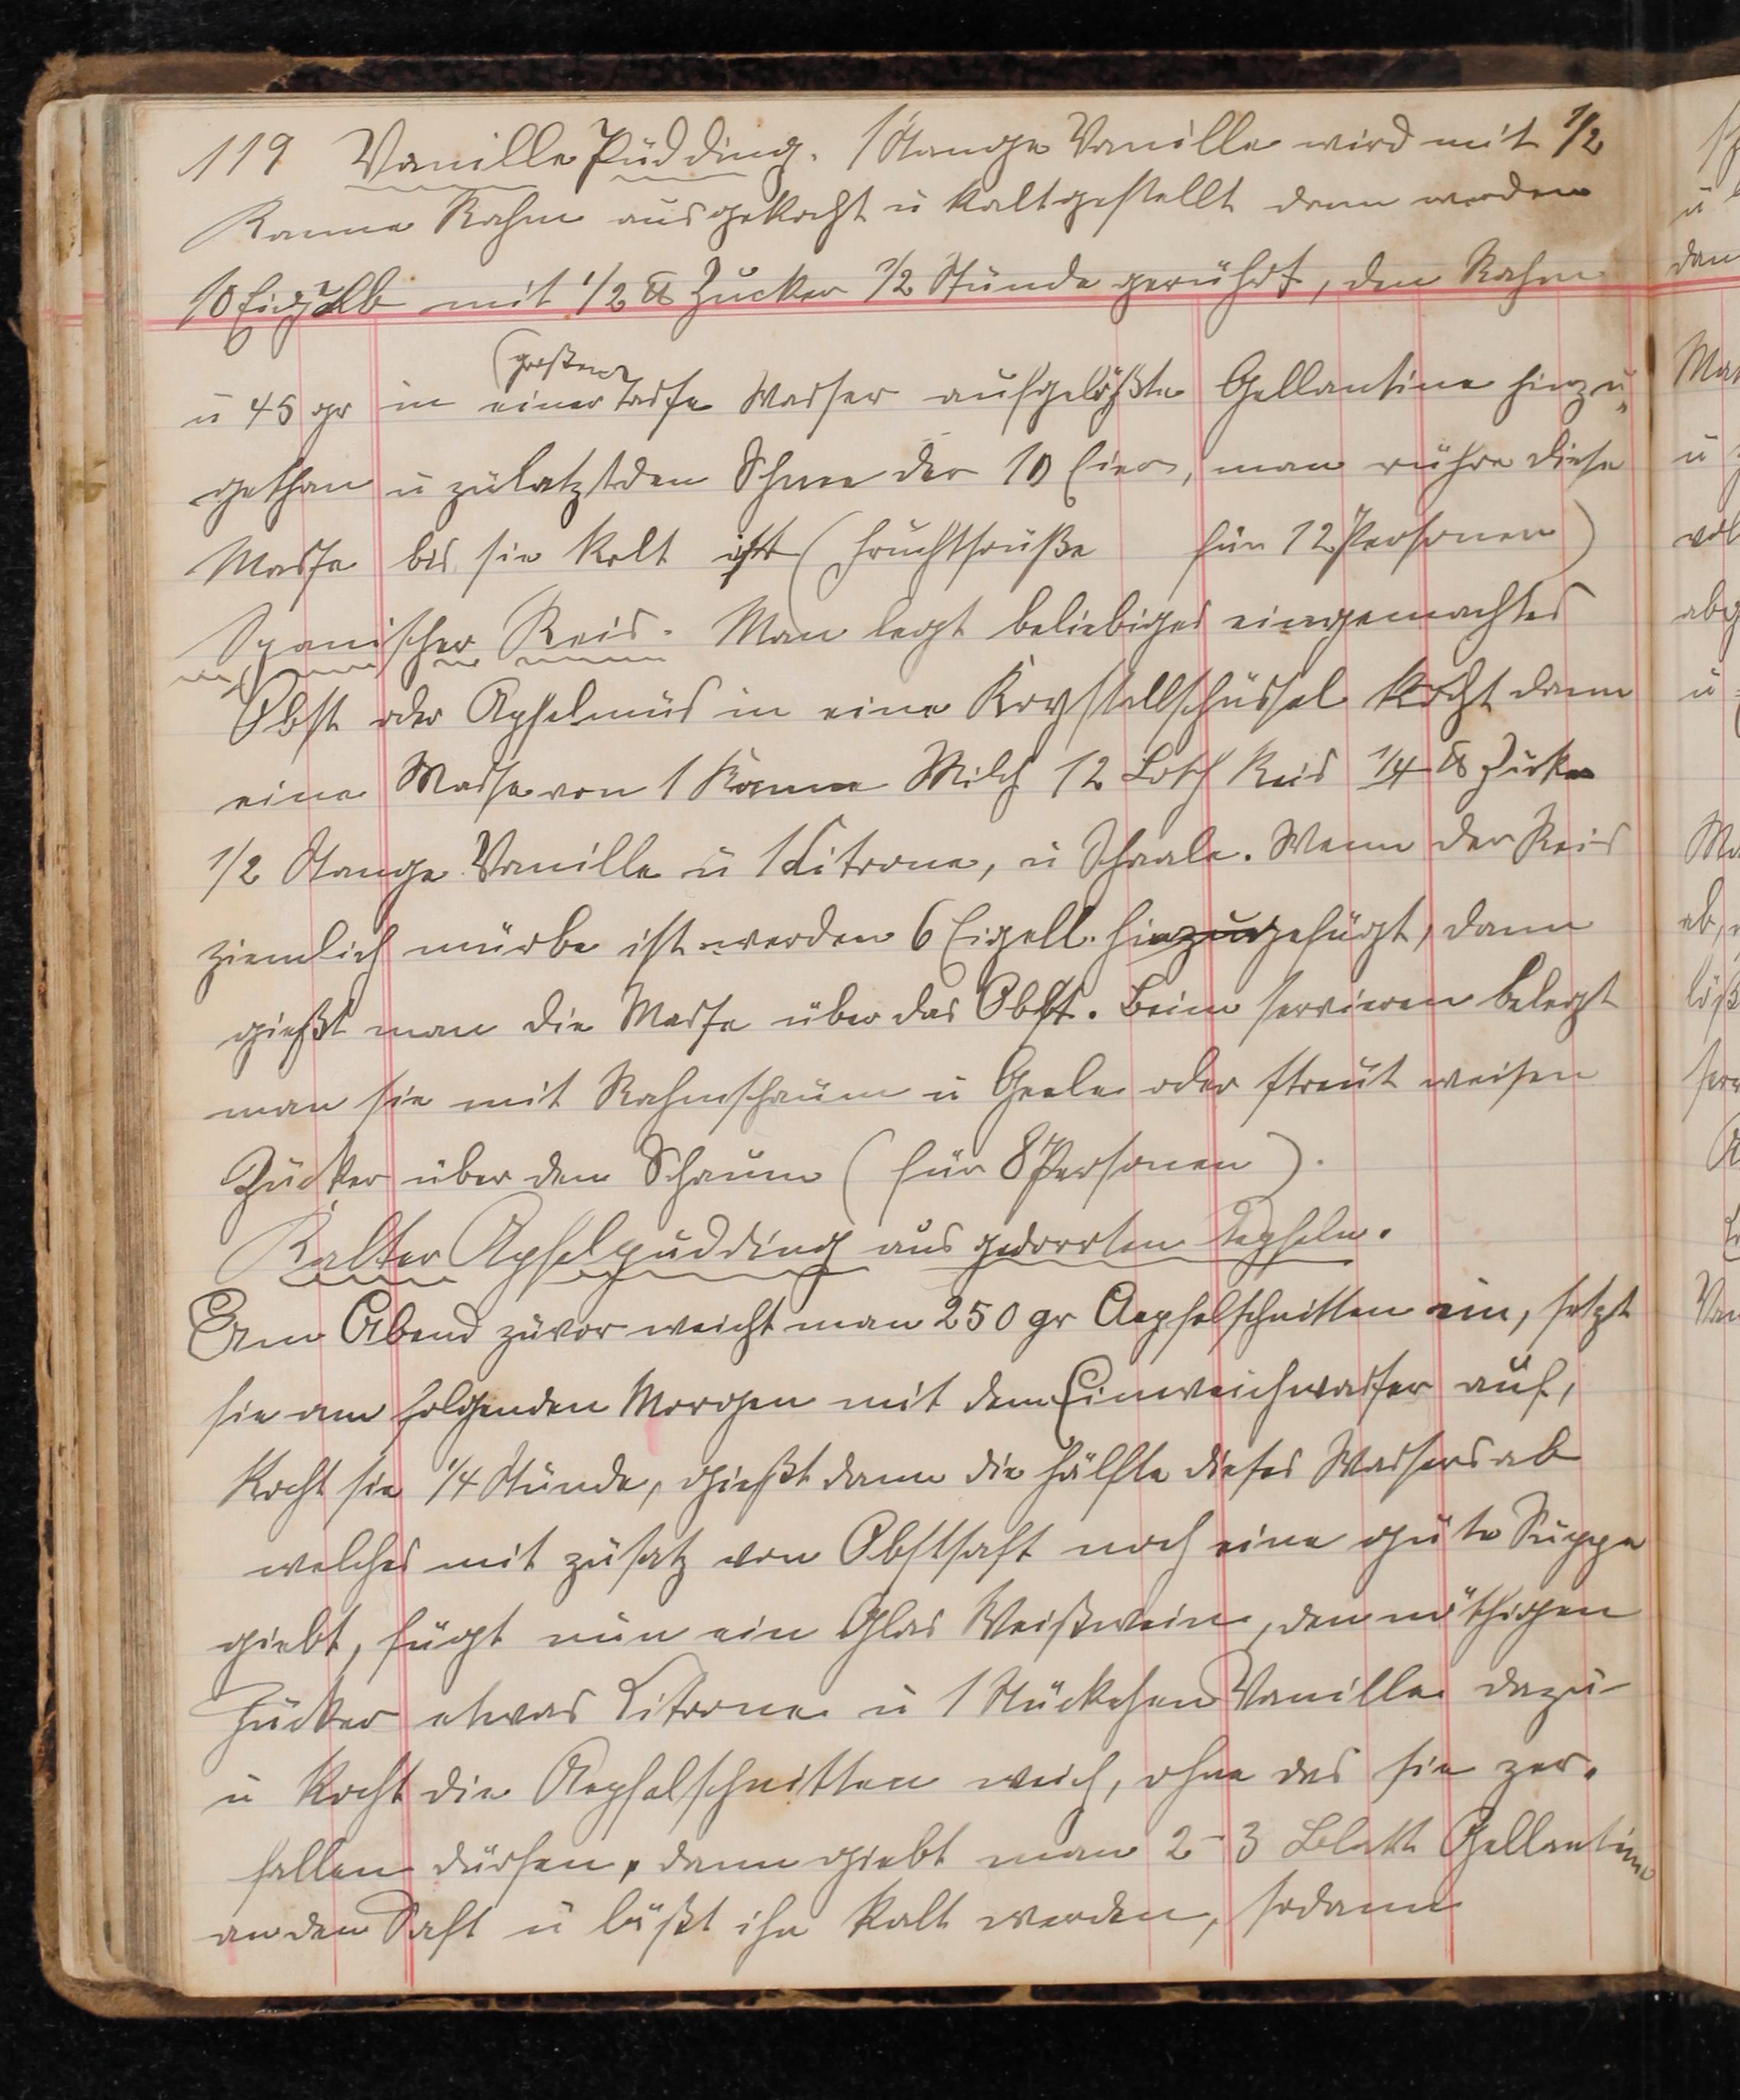 119 Vanille Pudding. 1 Stange Vanille wird mit 1/2
Kanne Rahm ausgekocht u kaltgestellt dann werden
10 Eigelb mit 1/2 ℔ Zucker 1/2 Stunde gerührt, den Rahm
(großen
u 45 gr in einer Tasse Wasser aufgelößte Gellantine hinzu„
gethan u zuletzt den Schnee der 10 Eier, man rühre diese
Masse bis sie kalt ist (Fruchtsauße für 12 Personen)
Spanischer Reis. Man legt beliebiges eingemachtes
Obst oder Apfelmus in eine Krystallschüssel kocht dann
eine Masse von 1 Kanne Milch 12 Loth Reis 1/4 ℔ Zucker
1/2 Stange Vanille u 1 Citrone, u Schaale. Wenn der Reis
ziemlich mürbe ist werden 6 Eigelb hinzugefügt, dann
gießt man die Masse über das Obst. Beim servieren belegt
man sie mit Rahmschaum u Geele oder streut weisen
Zucker über den Schaum (für 8 Personen).
Kalter Apfelpudding aus gedorrten Aepfeln.
Am Abend zuvor weicht man 250 gr Aepfelschnitten ein, setzt
sie am folgenden Morgen mit dem Einweichwasser auf,
kocht sie 1/4 Stunde, gießt dann die Hälfte dieses Wassers ab
welches mit zusatz von Obstsaft noch eine gute Suppe
giebt, fügt nun ein Glas Weißwein, den nöthigen
Zucker etwas Citrone u 1 Stückchen Vanille dazu
u kocht die Aepfelschnitten weich, ohne das sie zer„
fallen dürfen, dann giebt man 2-3 Blatt Gellantine
an den Saft u läßt ihn kalt werden, sodann